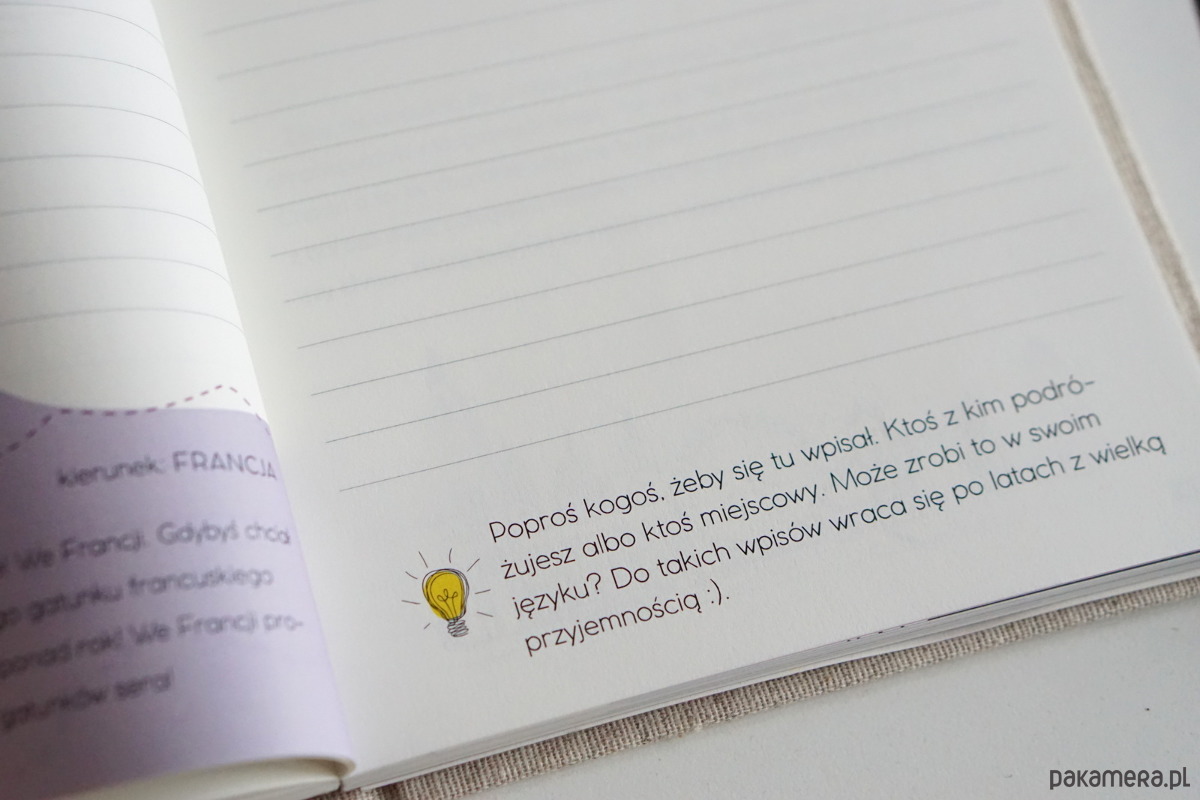 kierunek: FRANCJA
We Francji. Gdybyś chciał
gatunku francuskiego
ponad rok! We Francji pro-
gatunków sera!
Poproś kogoś, żeby się tu wpisał. Ktoś z kim podró-
żujesz albo ktoś miejscowy. Może zrobi to w swoim
języku? Do takich wpisów wraca się po latach z wielką
przyjemnością :).
pakamera.pl